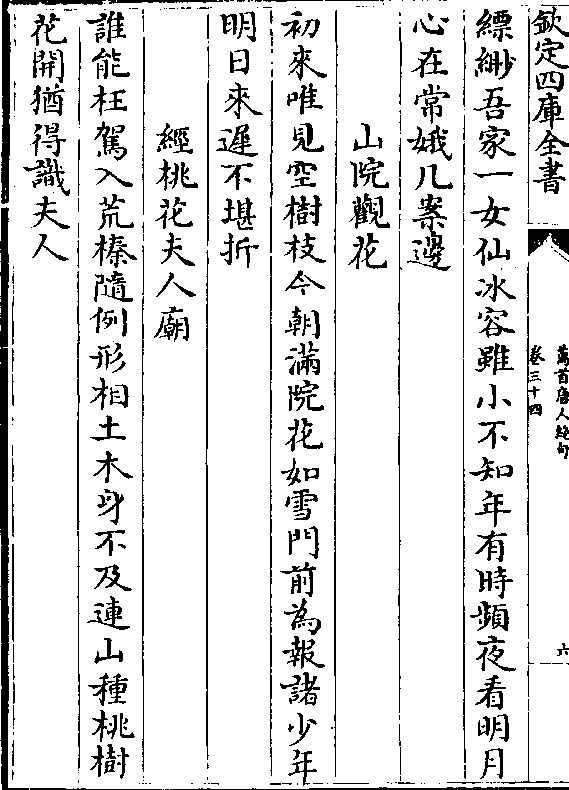 欽定四庫全書
萬首唐人絶句
卷三十四
六
縹緲吾家一女仙冰容雖小不知年有時頻夜看明月
心在常娥几案邊
山院觀花
初來唯見空樹枝今朝滿院花如雪門前為報諸少年
明日來遲不堪折
經桃花夫人廟
誰能枉駕入荒榛隨例形相土木身不及連山種桃樹
花開猶得識夫人